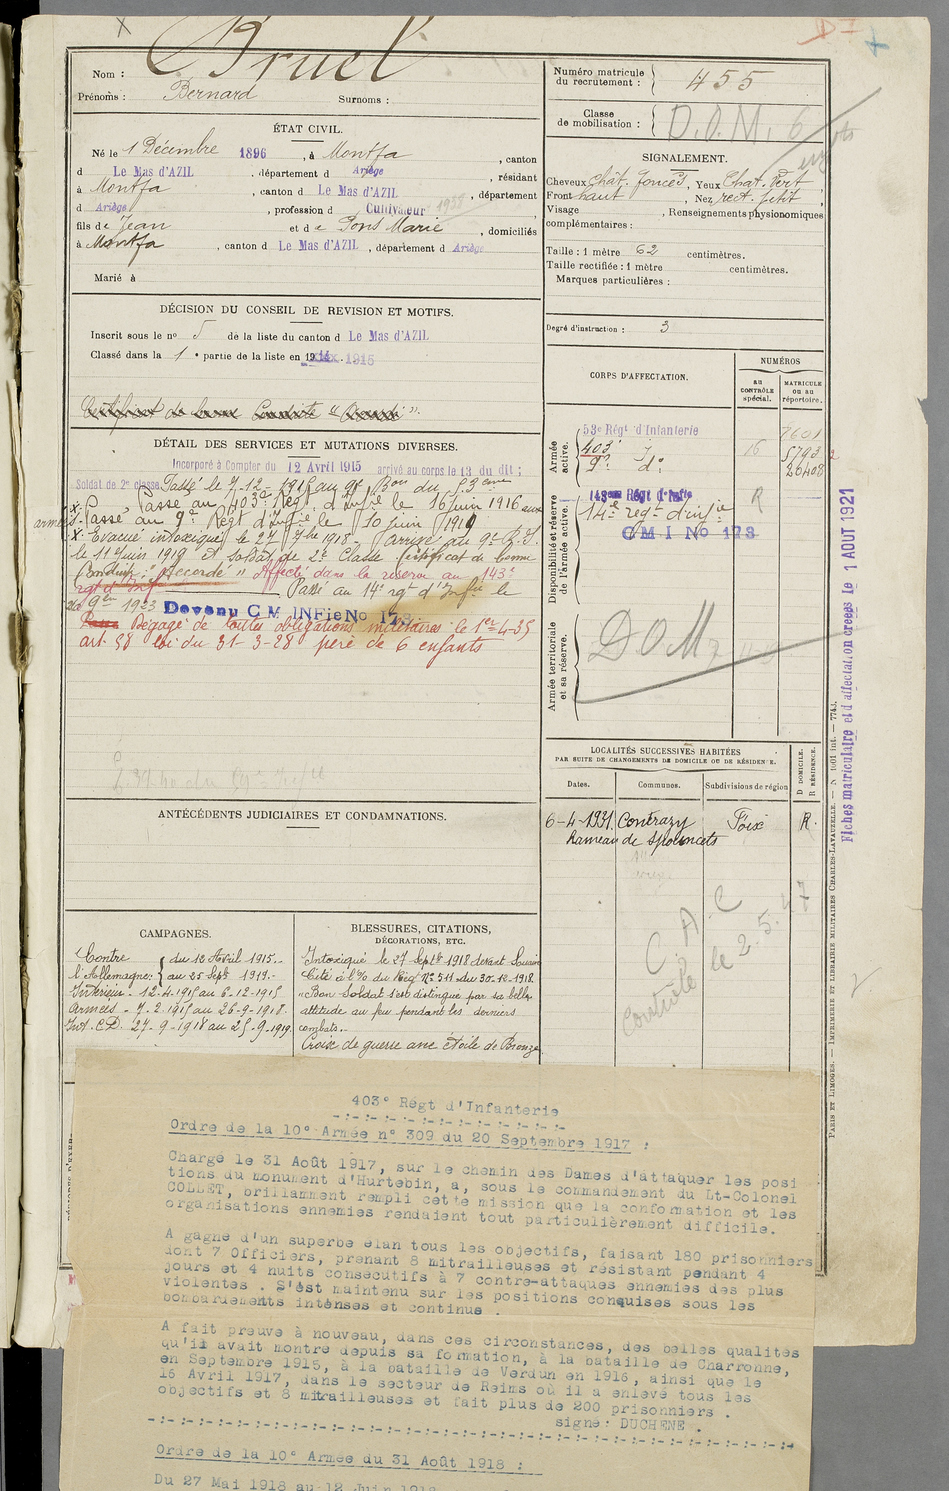 Nom : Bruel
Prénoms : Bernard Surnoms :
ÉTAT CIVIL.
Né le 1 Décembre 1896, à Montfa, canton
d Le Mas d'AZIL, département d Ariège, résidant
à Montfa, canton d Le Mas d'AZIL, département
d Ariège, profession d Cultivateur 1938
fils de Jean et de Pons Marie, domiciliés
à Montfa, canton d Le Mas d'AZIL, département d Ariège
Marié à
DÉCISION DU CONSEIL DE REVISION ET MOTIFS.
Inscrit sous le no 5 de la liste du canton d Le Mas d'AZIL
Classé dans la 1e partie de la liste en 1915
Certificat de bonne Conduite "Accordé".
DÉTAIL DES SERVICES ET MUTATIONS DIVERSES.
Incorporé à Compter du 12 Avril 1915 arrivé au corps le 13 du dit;
Soldat de 2e classe Passé le 7-12-1915 au 9e Bon du 53eme
Passé au 403e Régt d'Infie le 16 juin 1916 aux
armées. Passé au 9e Régt d'Infie le 10 juin 1919
Evacué intoxiqué le 27 7bre 1918. Arrivé au 9e R.I.
le 11 Juin 1919 et soldat de 2e Classe Certificat de bonne
Conduite : "Accordé" Affecté dans la réserve au 143e
régt d'Inf Passé au 14e rgt d'Infie le
1923 Devenu C M INFie No 173
Dégagé de toutes obligations militaires le 1er-4-35
art 58 loi du 31-3-28 père de 6 enfants
ANTÉCÉDENTS JUDICIAIRES ET CONDAMNATIONS.
CAMPAGNES.
Contre l'Allemagne: du 12 Avril 1915.-
au 25 Sept 1919.-
Intérieur - 12-4-1915 au 6-12-1915
Armées - 7-2-1915 au 26-9-1918.
Int. C.D. 27-9-1918 au 25-9-1919.
BLESSURES, CITATIONS,
DÉCORATIONS, ETC.
Intoxiqué le 27 Septbre 1918 devant Souain
Cité à l'O du Régt No 511 du 30-10-1918.
"Bon Soldat s'est distingué par sa belle
attitude au feu pendant les derniers
combats.."
Croix de guerre avec étoile de Bronze
Numéro matricule
du recrutement : 455
Classe
de mobilisation : D.O.M. 6
SIGNALEMENT.
Cheveux Chât. foncés, Yeux Chat. Vert,
Front haut, Nez rect. petit,
Visage , Renseignements physionomiques
complémentaires :
Taille : 1 mètre 62 centimètres.
Taille rectifiée : 1 mètre centimètres.
Marques particulières :
Degré d'instruction : 3
CORPS D'AFFECTATION.
NUMÉROS
AU CONTRÔLE spécial.
MATRICULE OU AU répertoire.
Armée active.
53e Régt d'Infanterie 7601
403e d° 16 5793
9e d° 26408
Disponibilité et réserve de l'armée active.
143eme Régt d'Infie R
14e regt d'infie
C M I No 173
Armée territoriale et sa réserve.
D O M 7
LOCALITÉS SUCCESSIVES HABITÉES
PAR SUITE DE CHANGEMENTS DE DOMICILE OU DE RÉSIDENCE.
Dates. Communes. Subdivisions de région
D DOMICILE. R RÉSIDENCE.
6-4-1931 Contrazy Foix R.
Hameau de
C. A. C
Contrôlé le 2.5.47
Fiches matriculaire et d'affectation créées le 1 AOUT 1921
PARIS ET LIMOGES. — IMPRIMERIE ET LIBRAIRIE MILITAIRES CHARLES-LAVAUZELLE.
403° Régt d'Infanterie
-:-:-:-:-:-:-:-:-:-:-:-
Ordre de la 10° Armée n° 309 du 20 Septembre 1917 :
Chargé le 31 Août 1917, sur le chemin des Dames d'attaquer les posi
tions du monument d'Hurtebin, a, sous le commandement du Lt-Colonel
COLLET, brillamment rempli cette mission que la conformation et les
organisations ennemies rendaient tout particulièrement difficile.
A gagné d'un superbe élan tous les objectifs, faisant 180 prisonniers
dont 7 Officiers, prenant 8 mitrailleuses et résistant pendant 4
jours et 4 nuits consecutifs à 7 contre-attaques ennemies des plus
violentes . S'ést maintenu sur les positions conquises sous les
bombardements intenses et continue .
A fait preuve à nouveau, dans ces circonstances, des belles qualités
qu'il avait montré depuis sa formation, à la bataille de Charronne,
en Septembre 1915, à la bataille de Verdun en 1916, ainsi que le
16 Avril 1917, dans le secteur de Reims où il a enlevé tous les
objectifs et 8 mitrailleuses et fait plus de 200 prisonniers .
signé: DUCHENE .
-:-:-:-:-:-:-:-:-:-:-:-:-:-:-:-:-:-:-:-:-:-:-:-:-
Ordre de la 10° Armée du 31 Août 1918 :
Du 27 Mai 1918 au 12 Juin 1918